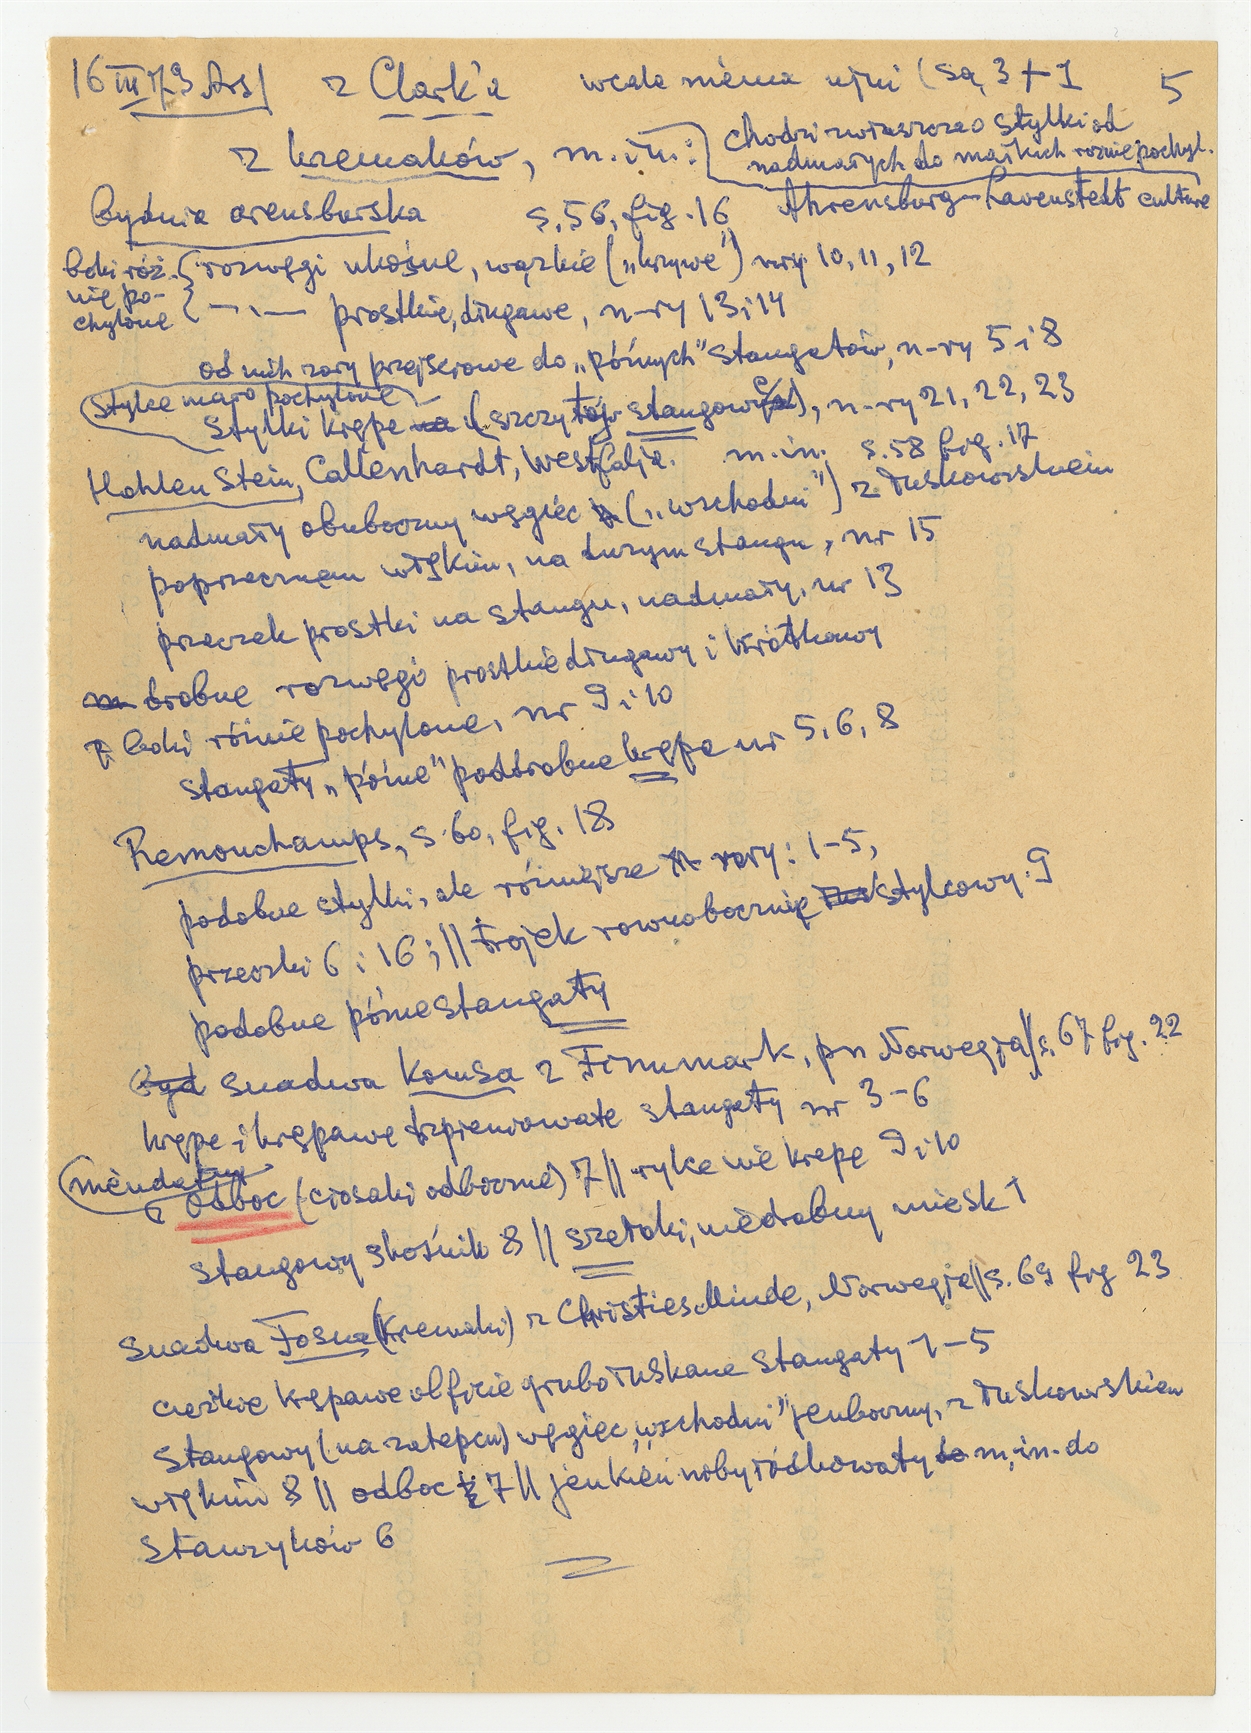 16 III 73 Ars| z Clark'a wcale niema ujni (są 3 + 1 5
z kremaków, m.in.: chodzi zwłaszcza o stylki od
nadmałych do małkich roznie pochyl.
bydnia arensburska s. 56, fig. 16 Ahrensburg-Lavenstedt culture
boki róż- rozwęgi ukośne, wązkie („krzywe") n-ry 10, 11, 12
nie po-
chylone — „ — prostkie, długawe, n-ry 13 i 14
od nich zary przejściowe do „późnych" stangatów, n-ry 5 i 8
stylce mało pochylone
stylki krępe (szczytój stangowe), n-ry 21, 22, 23
Hohlen Stein, Callenhardt, Westfalja. m.in. s. 58 fig. 17
nadmały obuboczny węgiec („wschodni") z łuskowskiem
poprzecznem więkiem, na dużym stangu, nr 15
przeczek prostki na stangu, nadmały, nr 13
drobne rozwęgi prostkie długawy i krótkawy
boki róźnie pochylone, nr 9 i 10
stangaty „późne" poddrobne krępe nr 5, 6, 8
Remouchamps, s. 60, fig. 18
podobne stylki, ale różniejsze n-ry: 1-5,
przeczki 6 i 16; || trojek rownobocznię stylcowy. 9
podobne późne stangaty
snadwa Komsa z Finnmark, pn Norwegja || s. 67 fig. 22
krępe i krępawe trzpieniowate stangaty nr 3-6
odboc (ciosaki odboczne) 7 || rylce nie krepę 9 i 10
stangowy skośnik 8 || szetaki, niedrobny miesk 1
snadwa Fosna (kremaki) z Christies Minde, Norwegja || s. 69 fig 23
cieżkie krępawe obficie grubołuskane stangaty 1-5
stangowy (na zatepcu) węgiec „wschodni" jenboczny, z łuskowskiem
więkiem 8 || odboc 7 || jenkień niby łódkowaty m.in. do
stawzyków 6